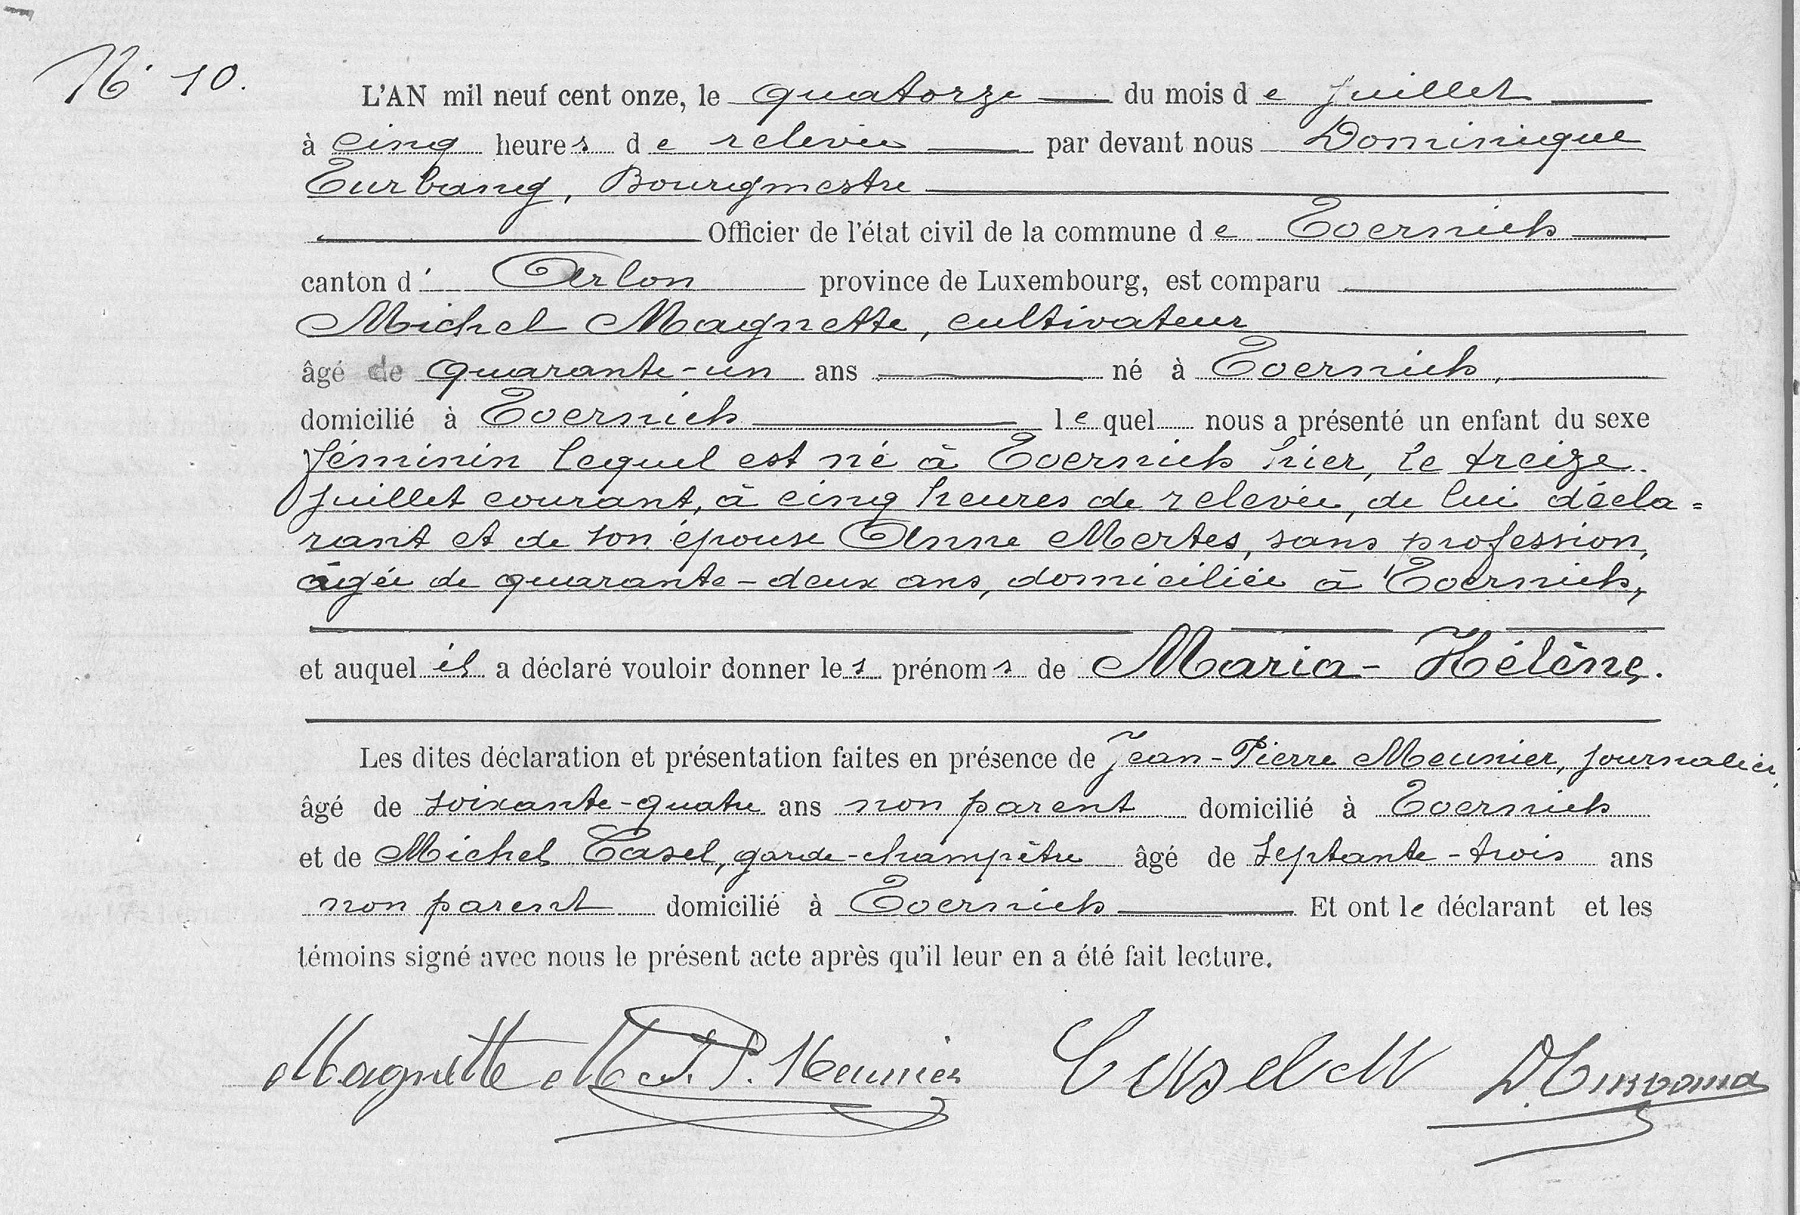 N° 10.
L'AN mil neuf cent onze, le quatorze du mois de juillet
à cinq heures de relevée par devant nous Dominique
Turbang, Bourgmestre
Officier de l'état civil de la commune de Toernich
canton d' Arlon province de Luxembourg, est comparu
Michel Magnette, cultivateur
âgé de quarante-un ans né à Toernich,
domicilié à Toernich lequel nous a présenté un enfant du sexe
féminin lequel est né à Toernich hier, le treize
juillet courant, à cinq heures de relevée, de lui décla=
rant et de son épouse Anne Mertes, sans profession,
âgée de quarante-deux ans, domiciliée à Toernich,
et auquel il a déclaré vouloir donner les prénoms de Maria-Hélène.
Les dites déclaration et présentation faites en présence de Jean-Pierre Meunier, journalier,
âgé de soixante-quatre ans non parent domicilié à Toernich
et de Michel Casel, garde-champêtre âgé de septante-trois ans
non parent domicilié à Toernich Et ont le déclarant et les
témoins signé avec nous le présent acte après qu'il leur en a été fait lecture.
Magnette M J. P. Meunier Casel M D. Turbang